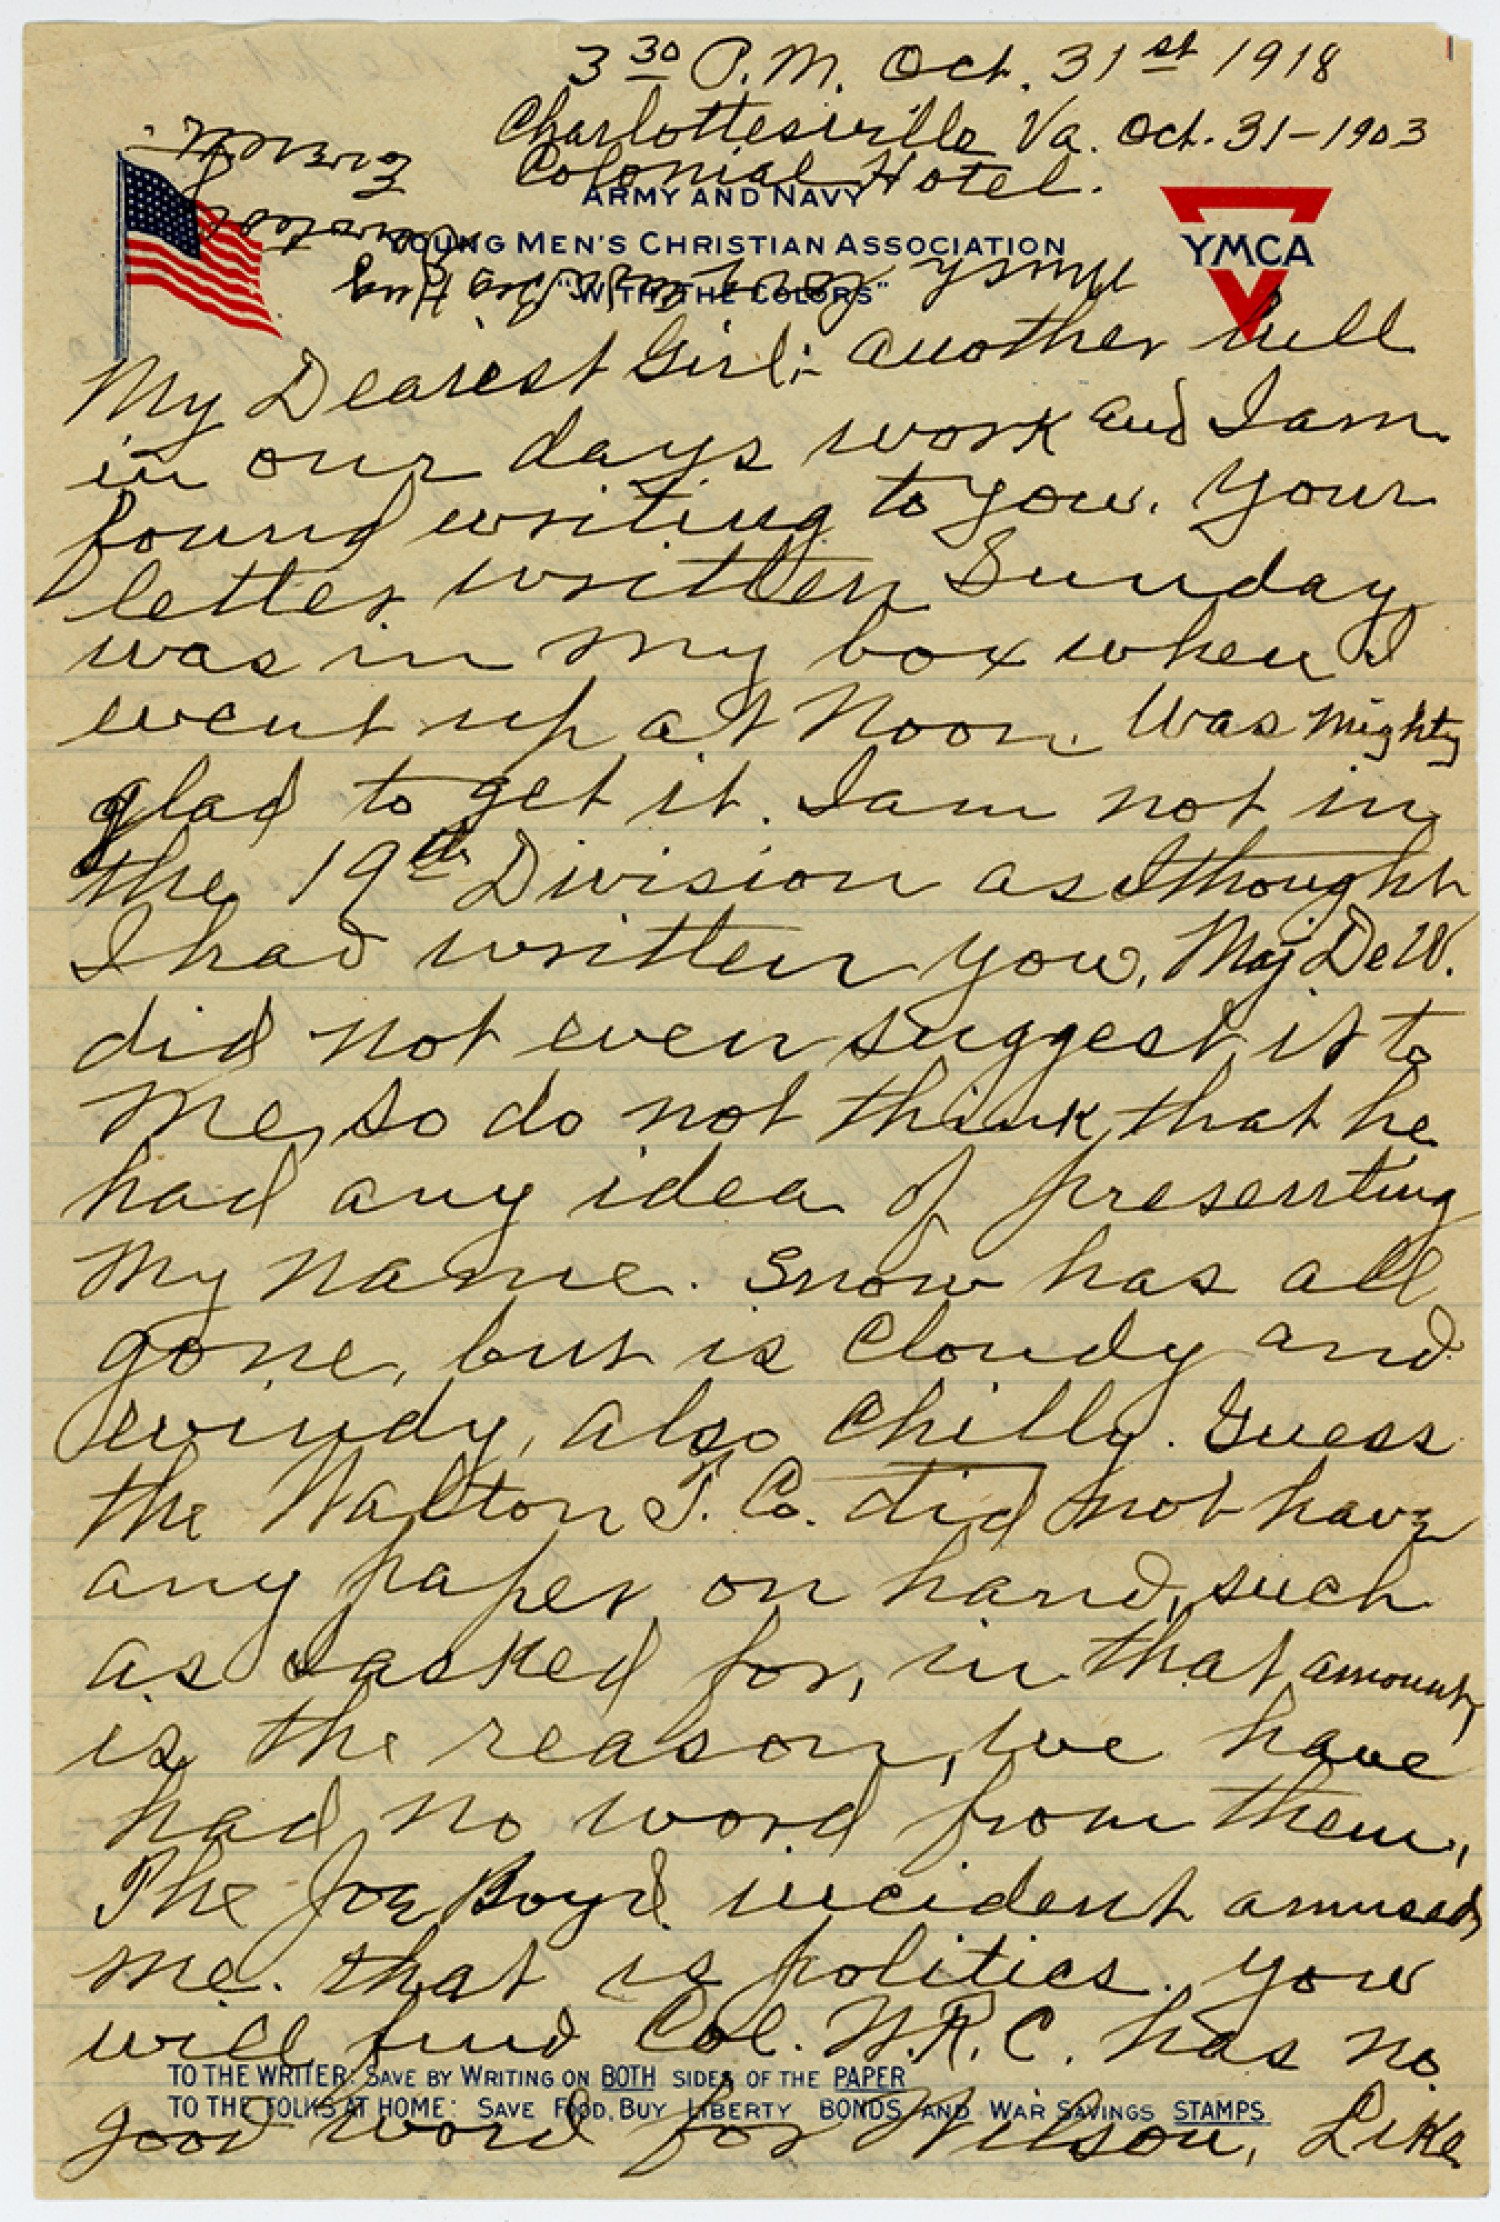 3 30 P.M. Oct. 31st 1918
Charlottesville Va. Oct. 31-1903
Colonial Hotel.
ARMY AND NAVY
YOUNG MEN'S CHRISTIAN ASSOCIATION
"WITH THE COLORS"
YMCA
My Dearest Girl:- Another lull
in our days work and I am
found writing to you. Your
letter written Sunday
was in my box when I
went up at Noon. Was mighty
glad to get it. I am not in
the 19th Division as I thought
I had written you. Maj De W.
did not even suggest it to
me, so do not think that he
had any idea of presenting
my name. Snow has all
gone, but is cloudy and
windy, also chilly. Guess
the Walton T. Co. did not have
any paper on hand, such
as I asked for, in that amount,
is the reason, we have
had no word from them,
The Joe Boyd incident amused
me. that is politics. You
will find Col. W.R.C. has no
TO THE WRITER: SAVE BY WRITING ON BOTH SIDES OF THE PAPER
TO THE FOLKS AT HOME: SAVE FOOD, BUY LIBERTY BONDS AND WAR SAVINGS STAMPS
good word for Wilson, Like